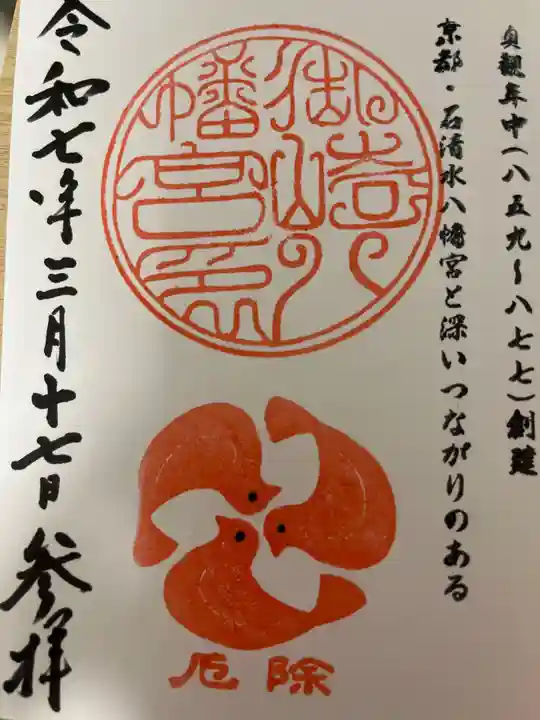 貞観年中(八五九〜八七七)創建
京都・石清水八幡宮と深いつながりのある
御崎八幡宮印
厄除
令和七年三月十七日 参拝